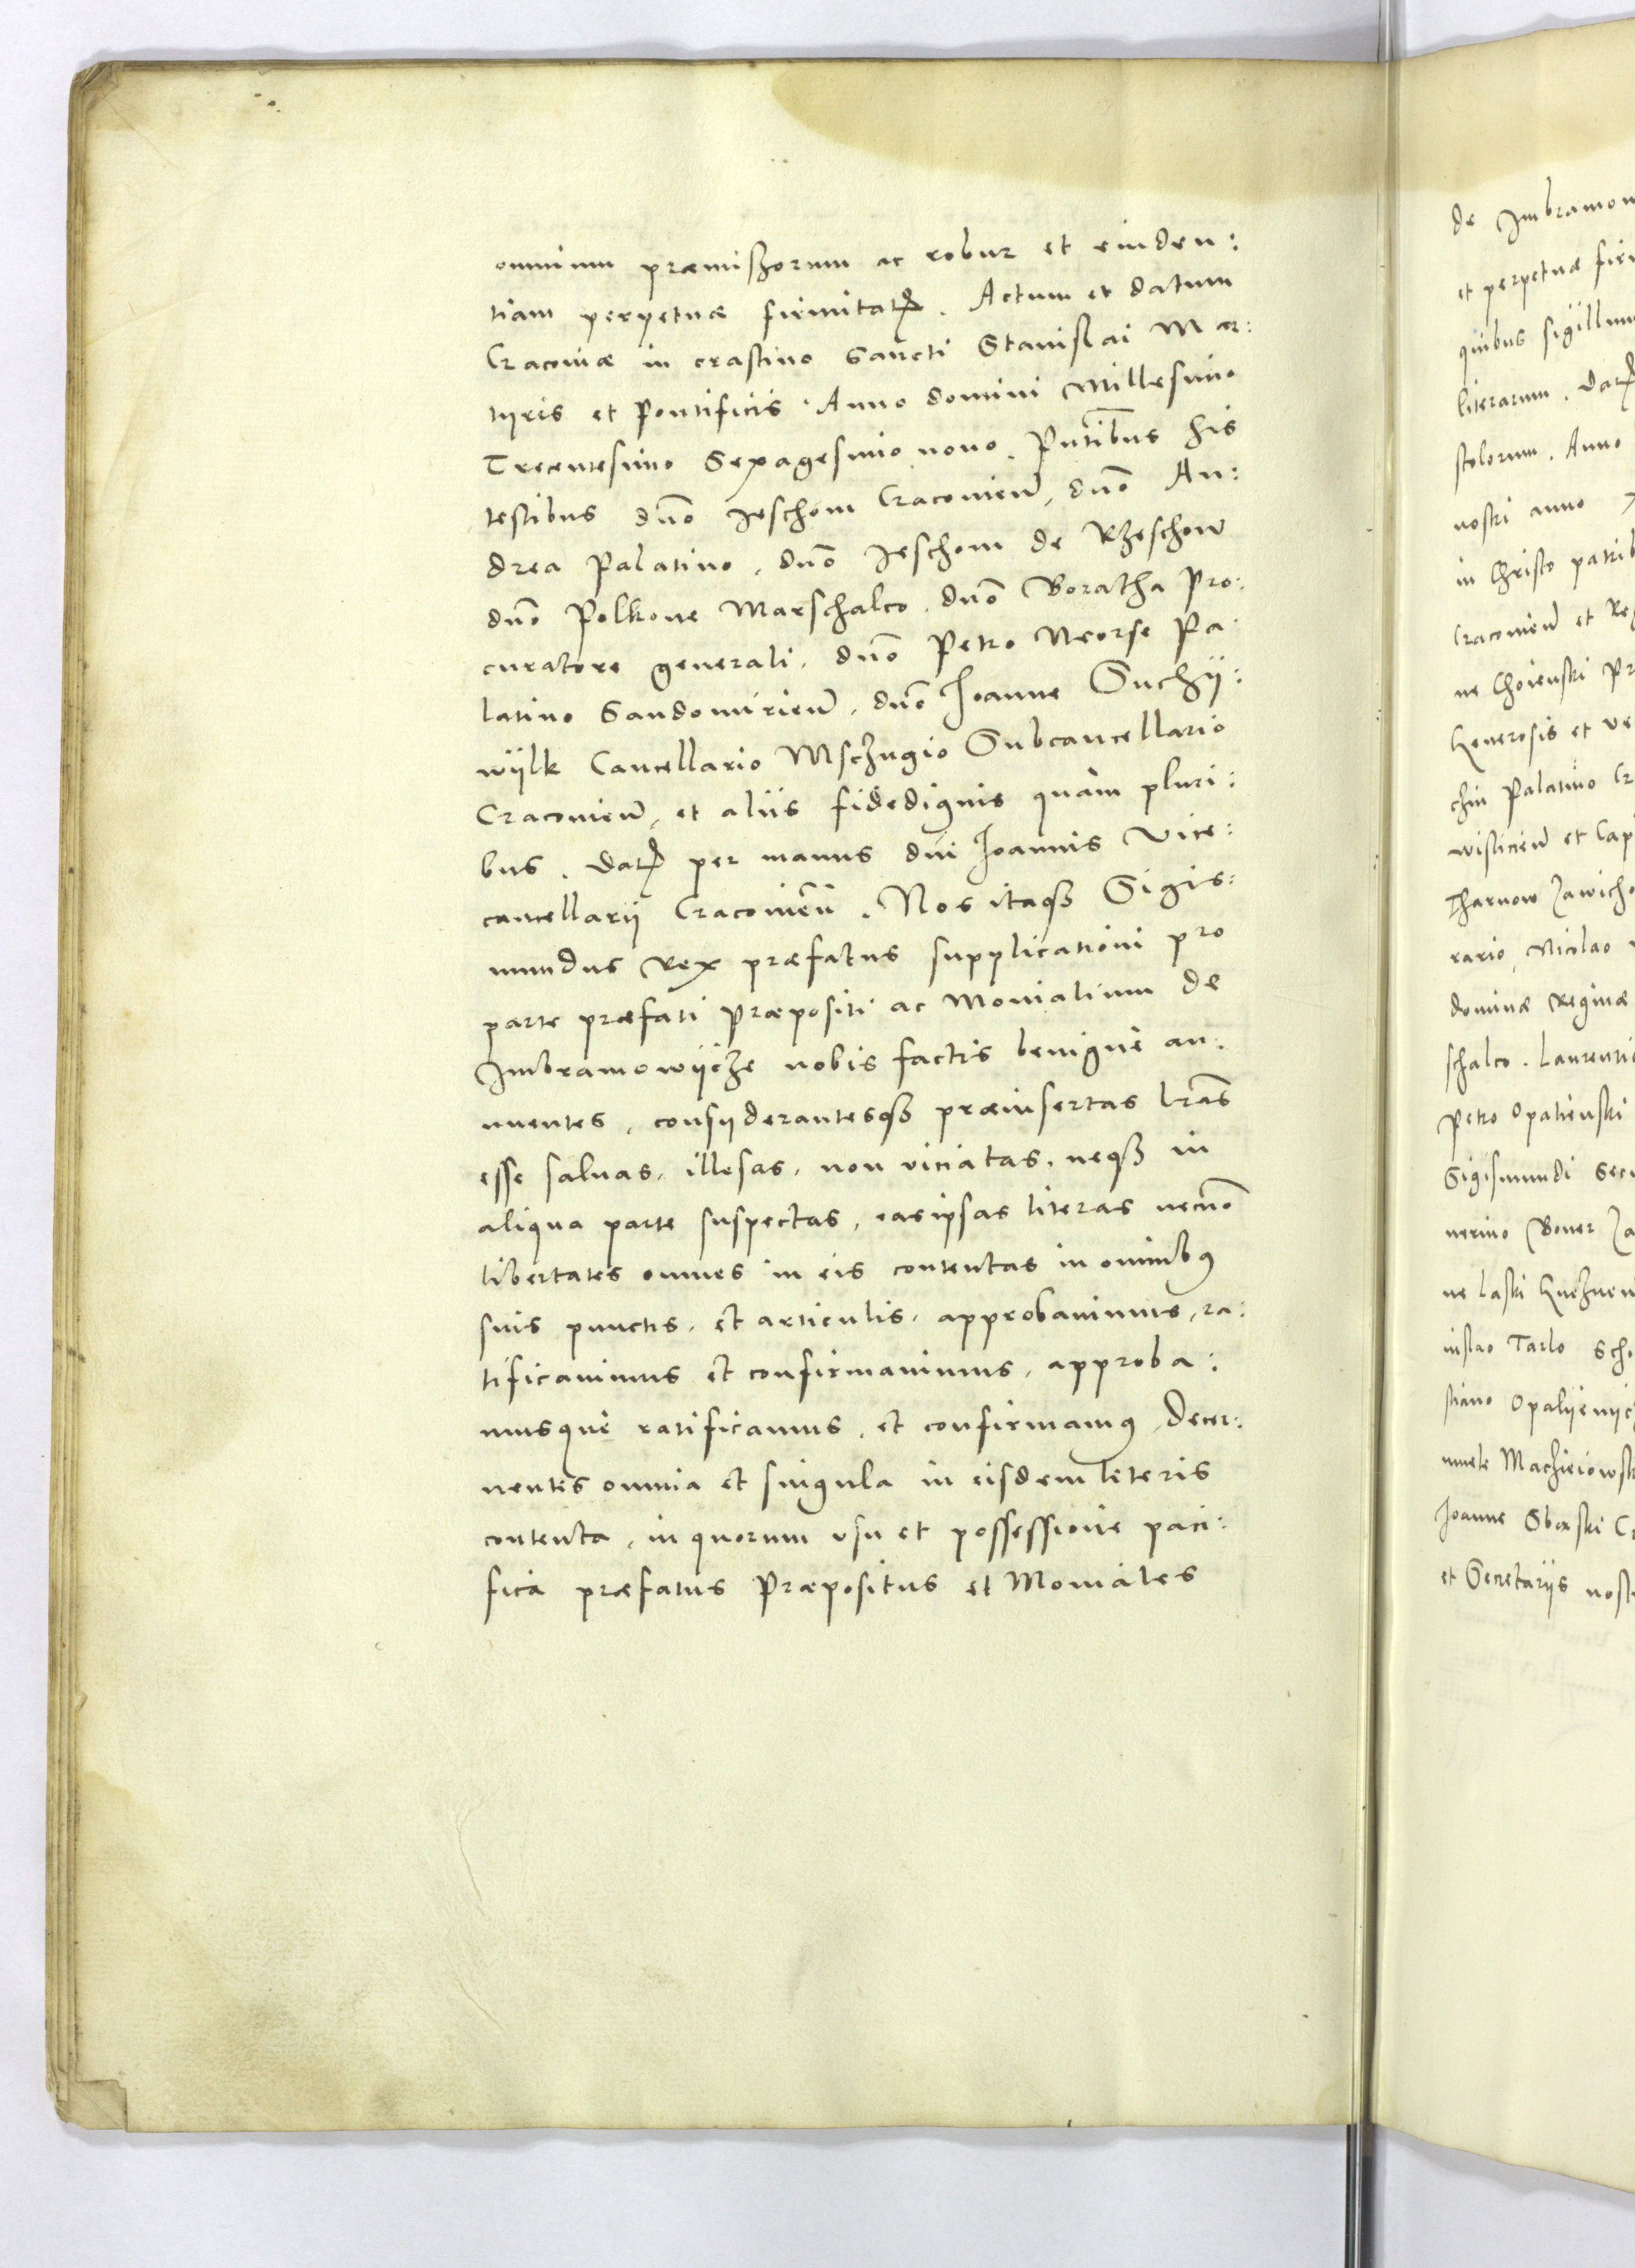 omnium præmissorum ac robur et euiden:
tiam perpetuæ firmitatꝭ. Actum et datum
Cracouiæ in crastino Sancti Stanislai Mar:
tyris et Pontificis. Anno domini Millesimo
Trecentesimo Sexagesimo nono. Pñtibus his
testibus dño Jeschone Cracouieñ, dño An:
drea Palatino, dño Jeschone de Rzeschow
dño Polkone Marschalco, dño Boratha Pro:
curatore generali, dño Petro Neorse Pa
latino Sandomirieñ, dño Joanne Suchÿ:
wÿlk Cancellario Msczugio Subcancellario
Cracouieñ, et aliis fidedignis quàm pluri:
bus. Datꝭ per manus dñi Joannis Vice:
cancellarÿ Cracouieñ. Nos itaqꝫ Sigis:
mundus Rex præfatus supplicationi pro
parte præfati Præpositi ac Monialium de
Imbramowÿcze nobis factis benignè an:
nuentes, consÿderantesqꝫ præinsertas l̃ras
esse saluas, illesas, non viciatas, neqꝫ in
aliqua parte suspectas, eas ipsas literas necnõ
libertates omnes in eis contentas in omnibꝰ
suis punctis, et articulis, approbauimus, ra:
tificauimus et confirmauimus, approba:
musque ratificamus, et confirmamꝰ, Decer:
nentes omnia et singula in eisdem literis
contenta, in quorum vsu et possessione paci:
fica præfatus Præpositus et Moniales
de Imbramow
et perpetuæ fir
quibus sigillum
literarum. Datꝭ
stolorum. Anno
nostri anno
in Christo patrib
Cracouieñ et
ne Choienski Pr
Generosis et ve
chin Palatino Cr
wisliciеñ et Cap
Tharnow Zawicho
rario, Nicolao
dominæ Reginæ
schalco. Laurentio
Petro Opalienski
Sigismundi Secu
uerino Boner
ne Laski
nislao Tarlo
stiano
muele Machieiowsk
Joanne
et Secretarÿs nost